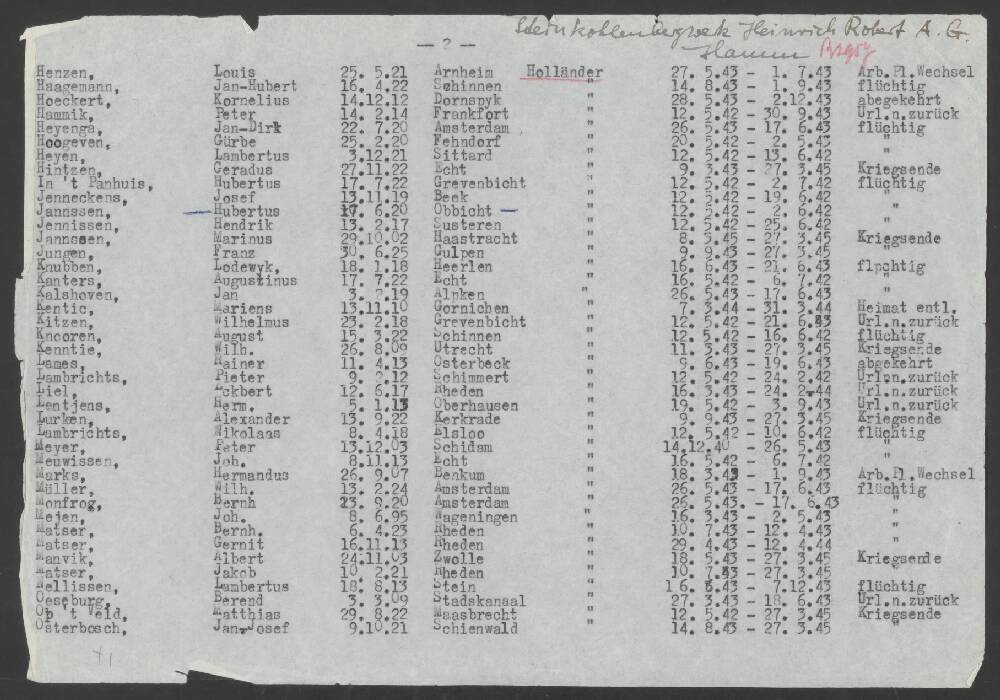 Steinkohlenbergwerk Heinrich Robert A. G.
— 2 — Hamm
Henzen, Louis 25. 5.21 Arnheim Holländer 27. 5.43 - 1. 7.43 Arb.Pl.Wechsel
Haagemann, Jan-Hubert 16. 4.22 Schinnen " 14. 8.43 - 1. 9.43 flüchtig
Hoeckert, Kornelius 14.12.12 Dornspyk " 28. 5.43 - 2.12.43 abegekehrt
Hammik, Peter 14. 2.14 Frankfort " 12. 5.42 - 30. 9.43 Url.n.zurück
Heyenga, Jan-Dirk 22. 7.20 Amsterdam " 26. 5.43 - 17. 6.43 flüchtig
Hoogeven, Gürbe 25. 2.20 Fehndorf " 20. 5.42 - 2. 5.43 "
Heyen, Lambertus 3.12.21 Sittard " 12. 5.42 - 13. 6.42 "
Hintzen, Geradus 27.11.22 Echt " 9. 3.43 - 27. 3.45 Kriegsende
In 't Panhuis, Hubertus 17. 7.22 Grevenbicht " 12. 5.42 - 2. 7.42 flüchtig
Jenneckens, Josef 13.11.19 Beek " 12. 5.42 - 19. 6.42 "
Jannssen, — Hubertus 17. 6.20 Obbicht — " 12. 5.42 - 2. 6.42 "
Jennissen, Hendrik 13. 2.17 Susteren " 12. 5.42 - 25. 6.42 "
Jannseen, Marinus 29.10.02 Haastracht " 8. 5.45 - 27. 3.45 Kriegsende
Jungen, Franz 30. 6.25 Gulpen " 9. 9.43 - 27. 3.45 "
Knubben, Lodewyk, 18. 1.18 Heerlen " 16. 6.43 - 21. 6.43 flpchtig
Kanters, Augustinus 17. 7.22 Echt " 16. 5.42 - 6. 7.42 "
Kalshoven, Jan 3. 9.19 Alpken " 26. 5.43 - 17. 6.43 "
Kentic, Mariens 13.11.10 Gornichen " 7. 3.44 - 31. 3.44 Heimat entl.
Kitzen, Wilhelmus 23. 2.18 Grevenbicht " 12. 5.42 - 21. 6.43 Url.n.zurück
Knooren, August 15. 3.22 Schinnen " 12. 5.42 - 16. 6.42 flüchtig
Kenntie, Wilh. 26. 8.09 Utrecht " 11. 3.43 - 27. 3.45 Kriegsende
Lames, Rainer 11. 4.13 Osterbeck " 9. 6.43 - 19. 6.43 abgekehrt
Lambrichts, Pieter 9. 2.12 Schimmert " 12. 5.42 - 24. 2.42 Url.n.zurück
Liel, Eckbert 12. 6.17 Rheden " 16. 3.43 - 24. 2.44 Url.n.zurück
Lentjens, Herm. 5. 1.13 Oberhausen " 19. 5.42 - 3. 9.43 Url.n.zurück
Lurken, Alexander 13. 9.22 Kerkrade " 9. 9.43 - 27. 3.45 Kriegsende
Lambrichts, Nikolaas 8. 4.18 Elsloo " 12. 5.42 - 10. 6.42 flüchtig
Meyer, Peter 13.12.03 Schidam " 14.12.40 - 26. 5.43 "
Meuwissen, Joh. 8.11.13 Echt " 16. 5.42 - 6. 7.42 "
Marks, Hermandus 26. 9.07 Benkum " 18. 3.43 - 1. 9.43 Arb.Pl.Wechsel
Müller, Wilh. 13. 2.24 Amsterdam " 26. 5.43 - 17. 6.43 flüchtig
Monfrog, Bernh 23. 9.20 Amsterdam " 26. 5.43. - 17. 6.43 "
Mejen, Joh. 8. 6.95 Wageningen " 16. 3.43 - 2. 5.43 "
Matser, Bernh. 6. 4.23 Rheden " 10. 7.43 - 12. 4.43 "
Matser, Gernit 16.11.13 Rheden " 29. 4.43 - 12. 4.44 "
Manvik, Albert 24.11.03 Zwolle " 18. 5.43 - 27. 3.45 Kriegsende
Matser, Jakob 10. 2.21 Rheden " 10. 7.43 - 27. 3.45 "
Nellissen, Lambertus 18. 8.13 Stein " 1.6. 6.43 - 7.12.43 flüchtig
Oeseburg, Berend 3. 3.09 Stadskanaal " 27. 3.43 - 18. 6.43 Url.n.zurück
Op 't Veld, Matthias 29. 8.22 Maasbrecht " 12. 5.42 - 27. 3.45 Kriegsende
Osterbosch, Jan-Josef 9.10.21 Schienwald " 14. 8.43 - 27. 3.45 "